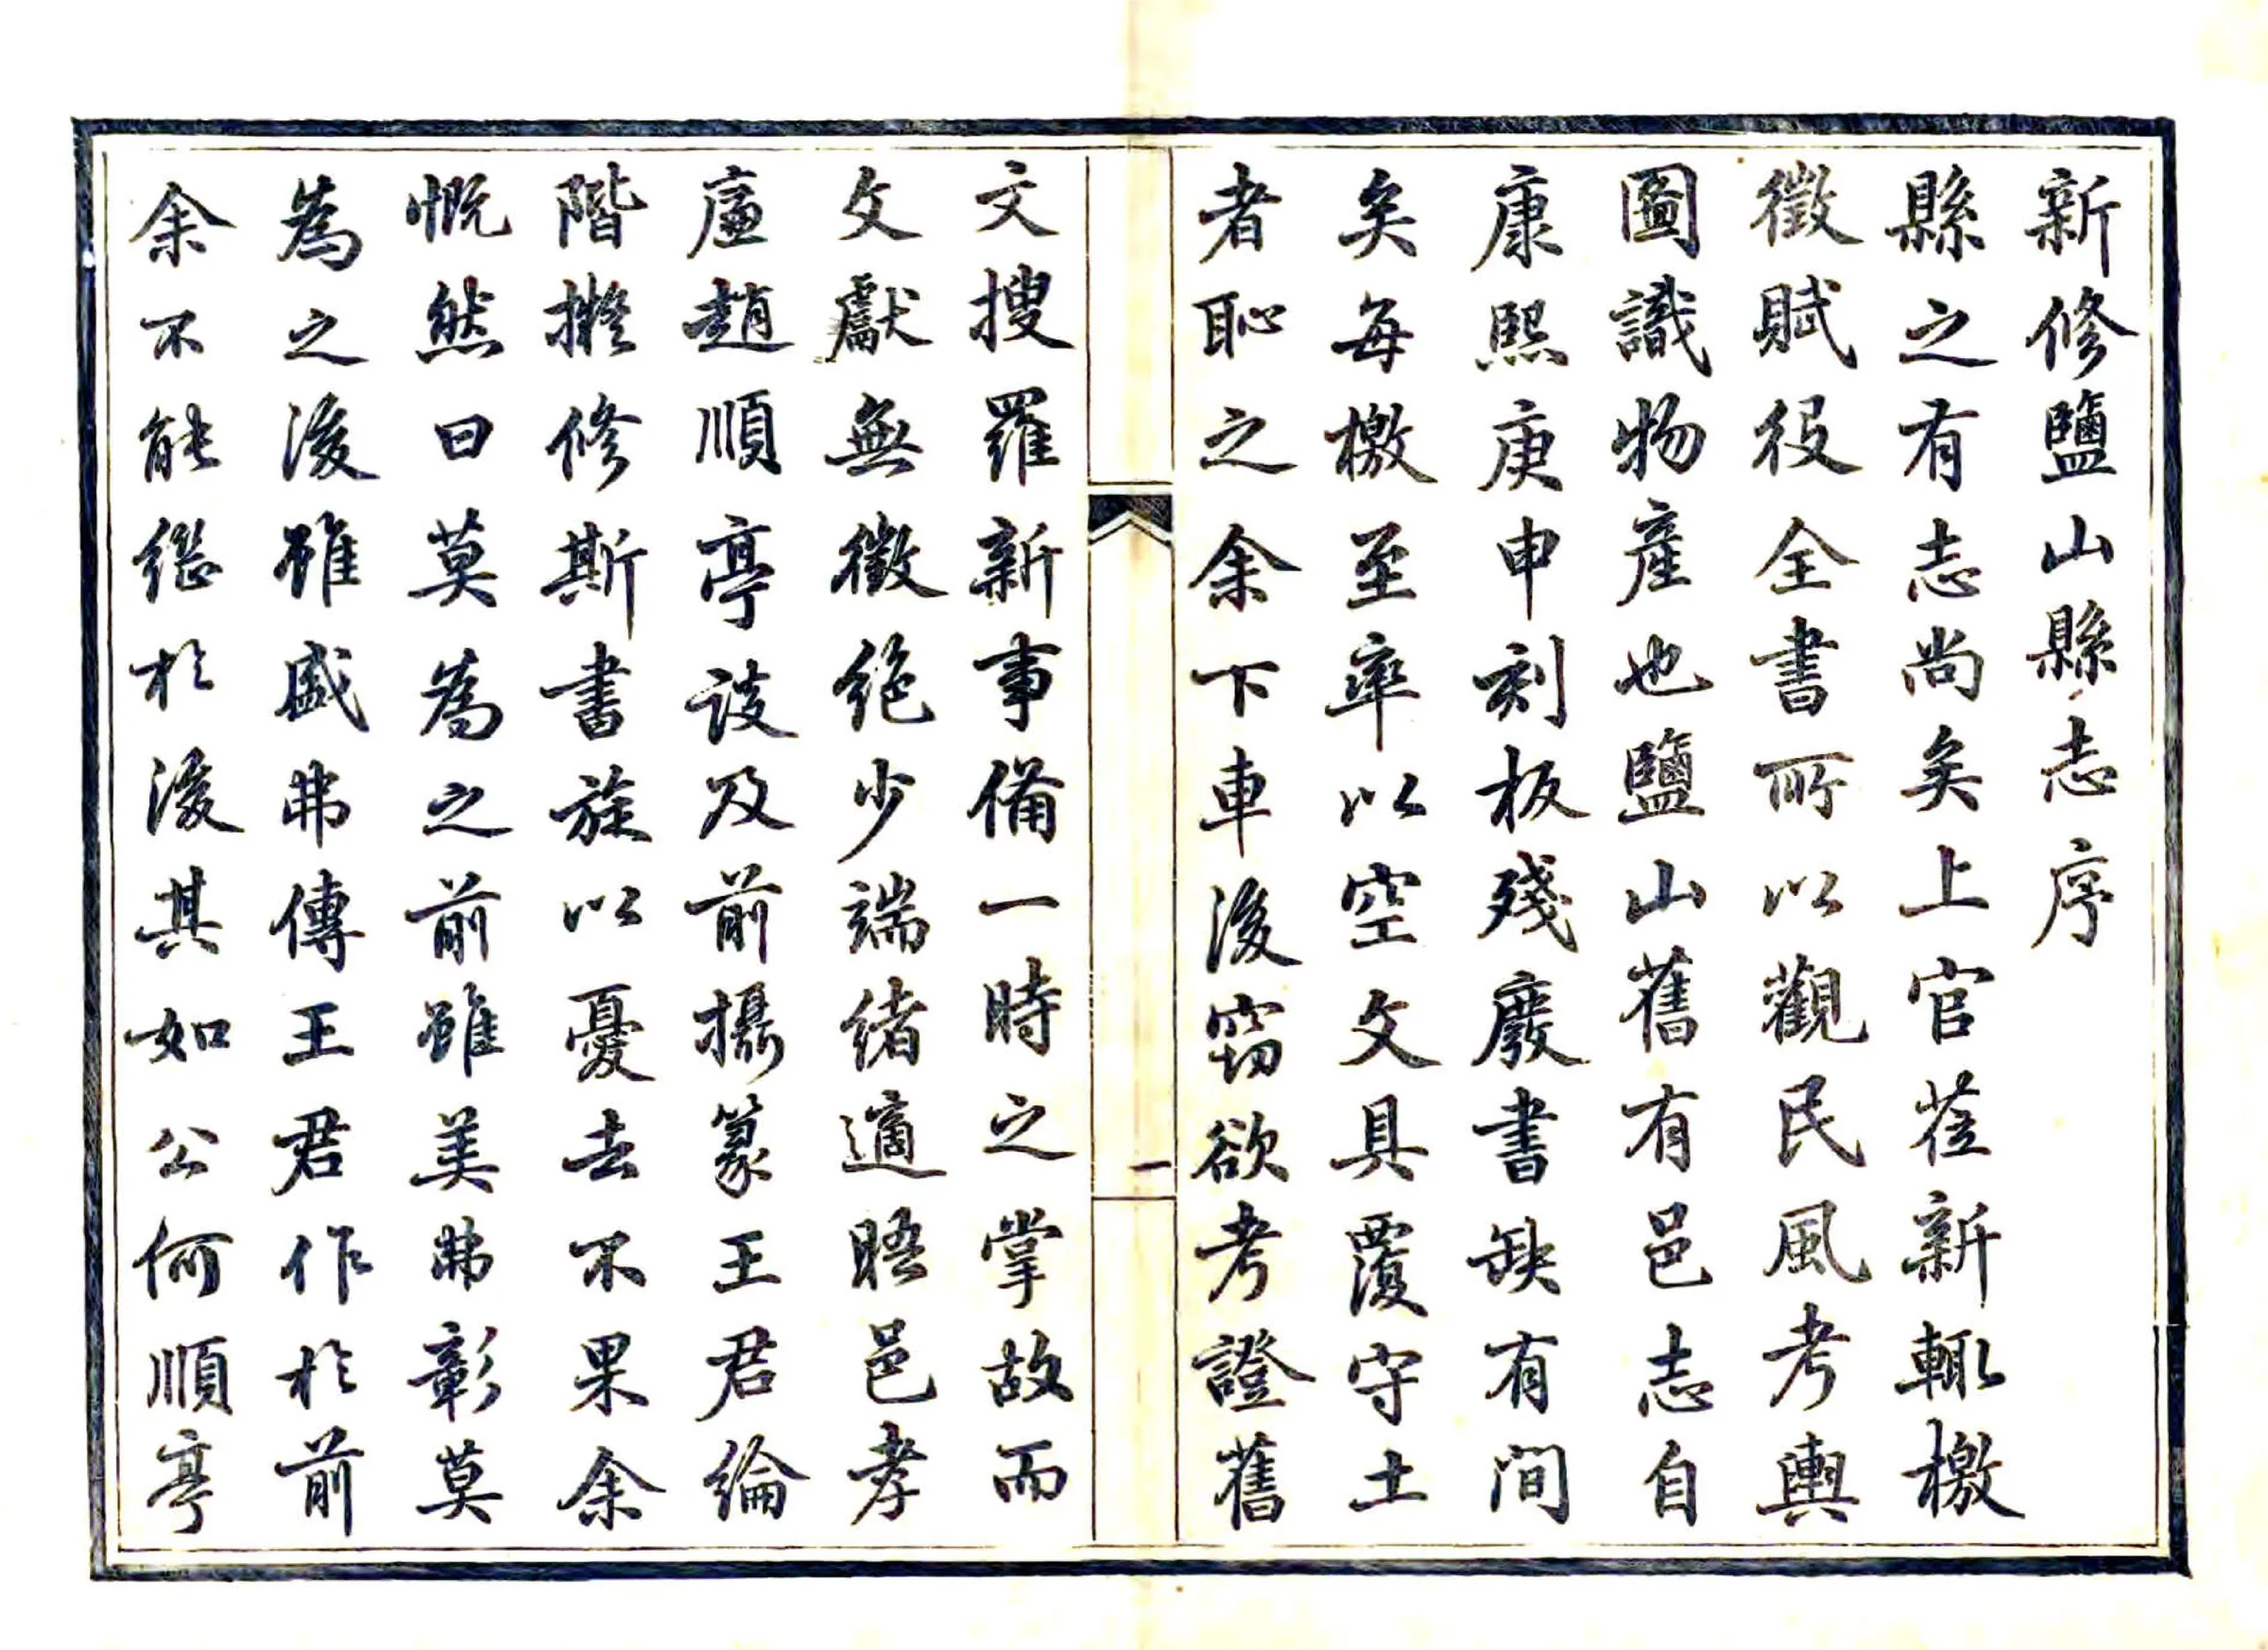 新修鹽山縣志序
縣之有志尚矣上官莅新輒檄
徵賦役全書所以觀民風考輿
圖識物產也鹽山舊有邑志自
康熙庚申刻板殘廢書缺有間
矣每檄至率以空文具覆守土
者恥之余下車後竊欲考證舊
一
文搜羅新事備一時之掌故而
文獻無徵絶少端緒適晤邑孝
廉趙順亭談及前攝篆王君綸
階擬修斯書旋以憂去不果余
慨然曰莫為之前雖美弗彰莫
為之後雖盛弗傳王君作於前
余不能繼於後其如公何順亭